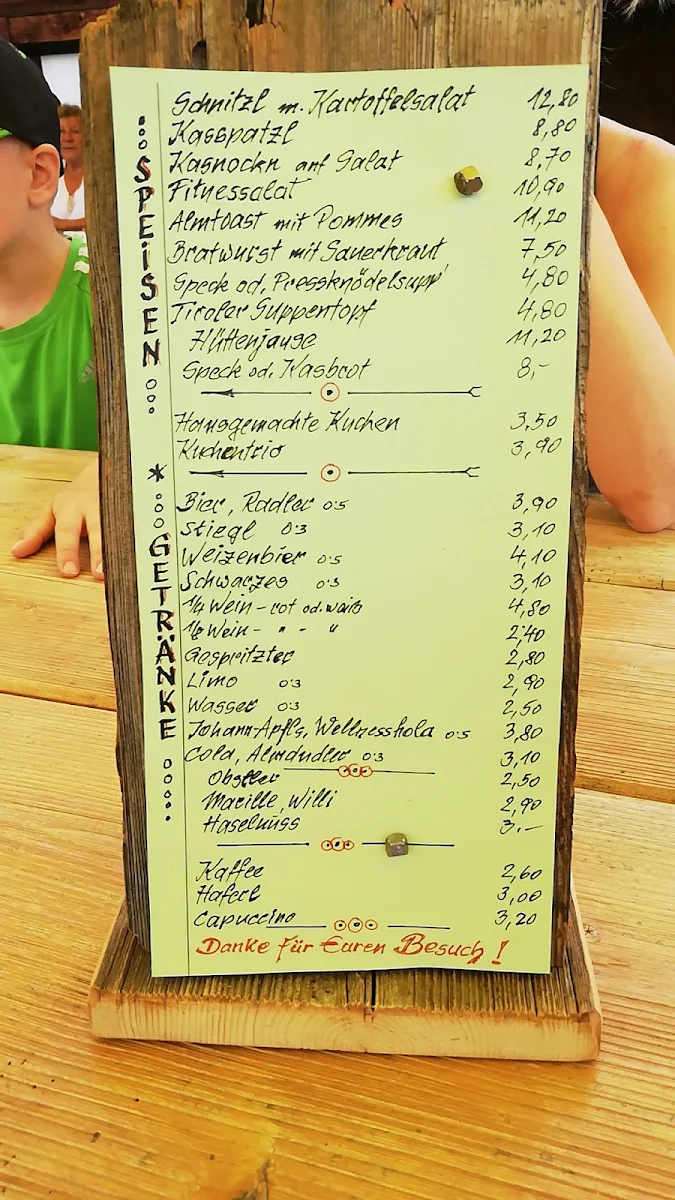 SPEISEN
Schnitzl m. Kartoffelsalat 12,80
Kasspatzl 8,80
Kasnockn auf Salat 8,70
Fitnessalat 10,90
Almtoast mit Pommes 11,20
Bratwurst mit Sauerkraut 7,50
Speck od. Pressknödelsupp' 4,80
Tiroler Suppentopf 4,80
Hüttenjause 11,20
Speck od. Kasbrot 8,-
Hausgemachte Kuchen 3,50
Kuchentrio 3,90
*
GETRÄNKE
Bier, Radler 0'5 3,90
Stiegl 0'3 3,10
Weizenbier 0'5 4,10
Schwarzes 0'3 3,10
1/4 Wein - rot od. waiß 4,80
1/8 Wein - " - " 2,40
Gespritzter 2,80
Limo 0'3 2,90
Wasser 0'3 2,50
Johann-Apfls, Wellnesshola 0'5 3,80
Cola, Almdudler 0'3 3,10
Obstler 2,50
Marille, Willi 2,90
Haselnuss 3.-
Kaffee 2,60
Haferl 3,00
Capuccino 3,20
Danke für Euren Besuch!